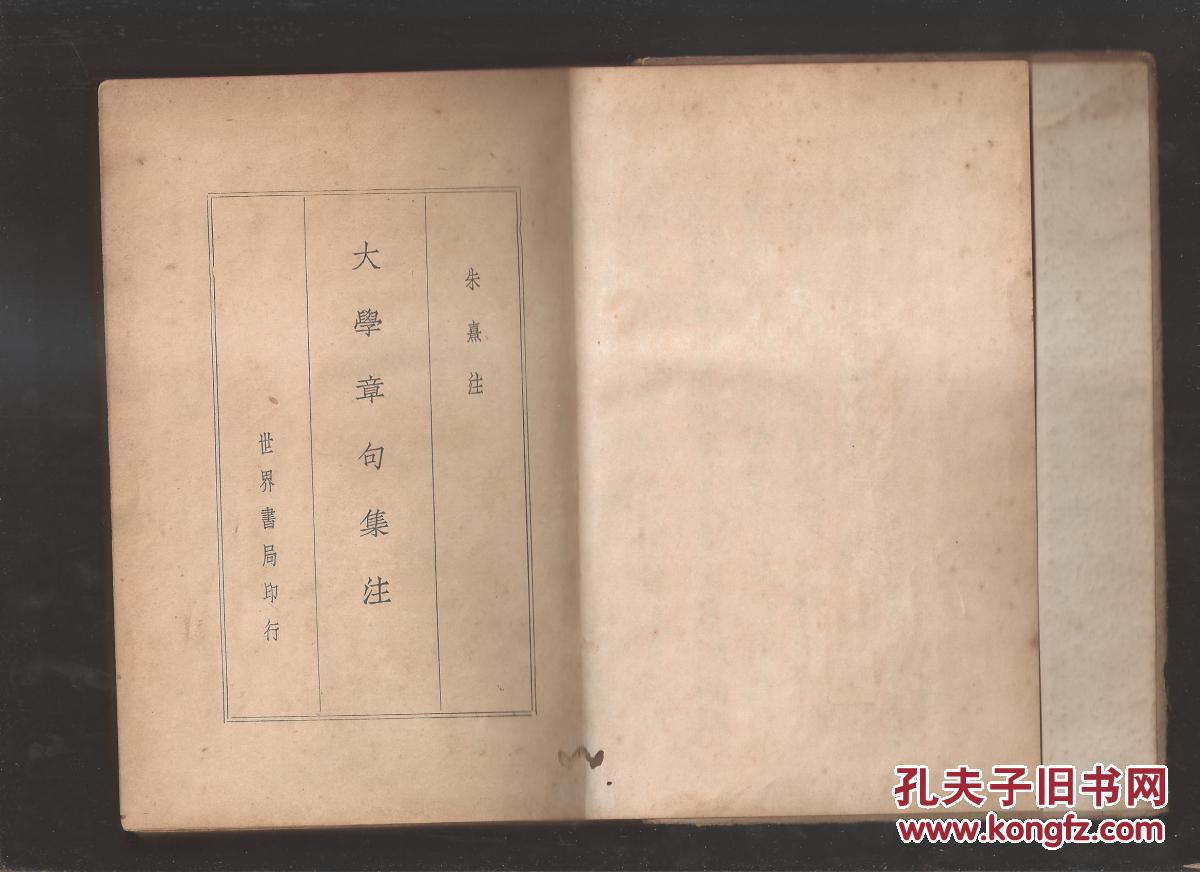 朱熹注
大學章句集注
世界書局印行
孔夫子旧书网
www.kongfz.com